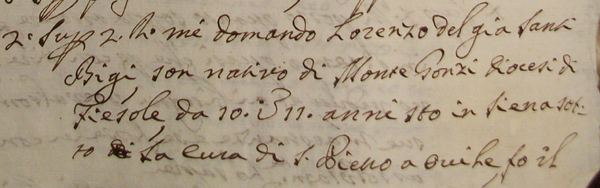 2.° Sup 2. R. mè domando Lorenzo del già Santi
Bigi son nativo di Monte Gonzi Diocesi di
Fiesole da 10. i 11. anni sto in Siena sot-
to la Cura di S. Pietro a ovile fo il